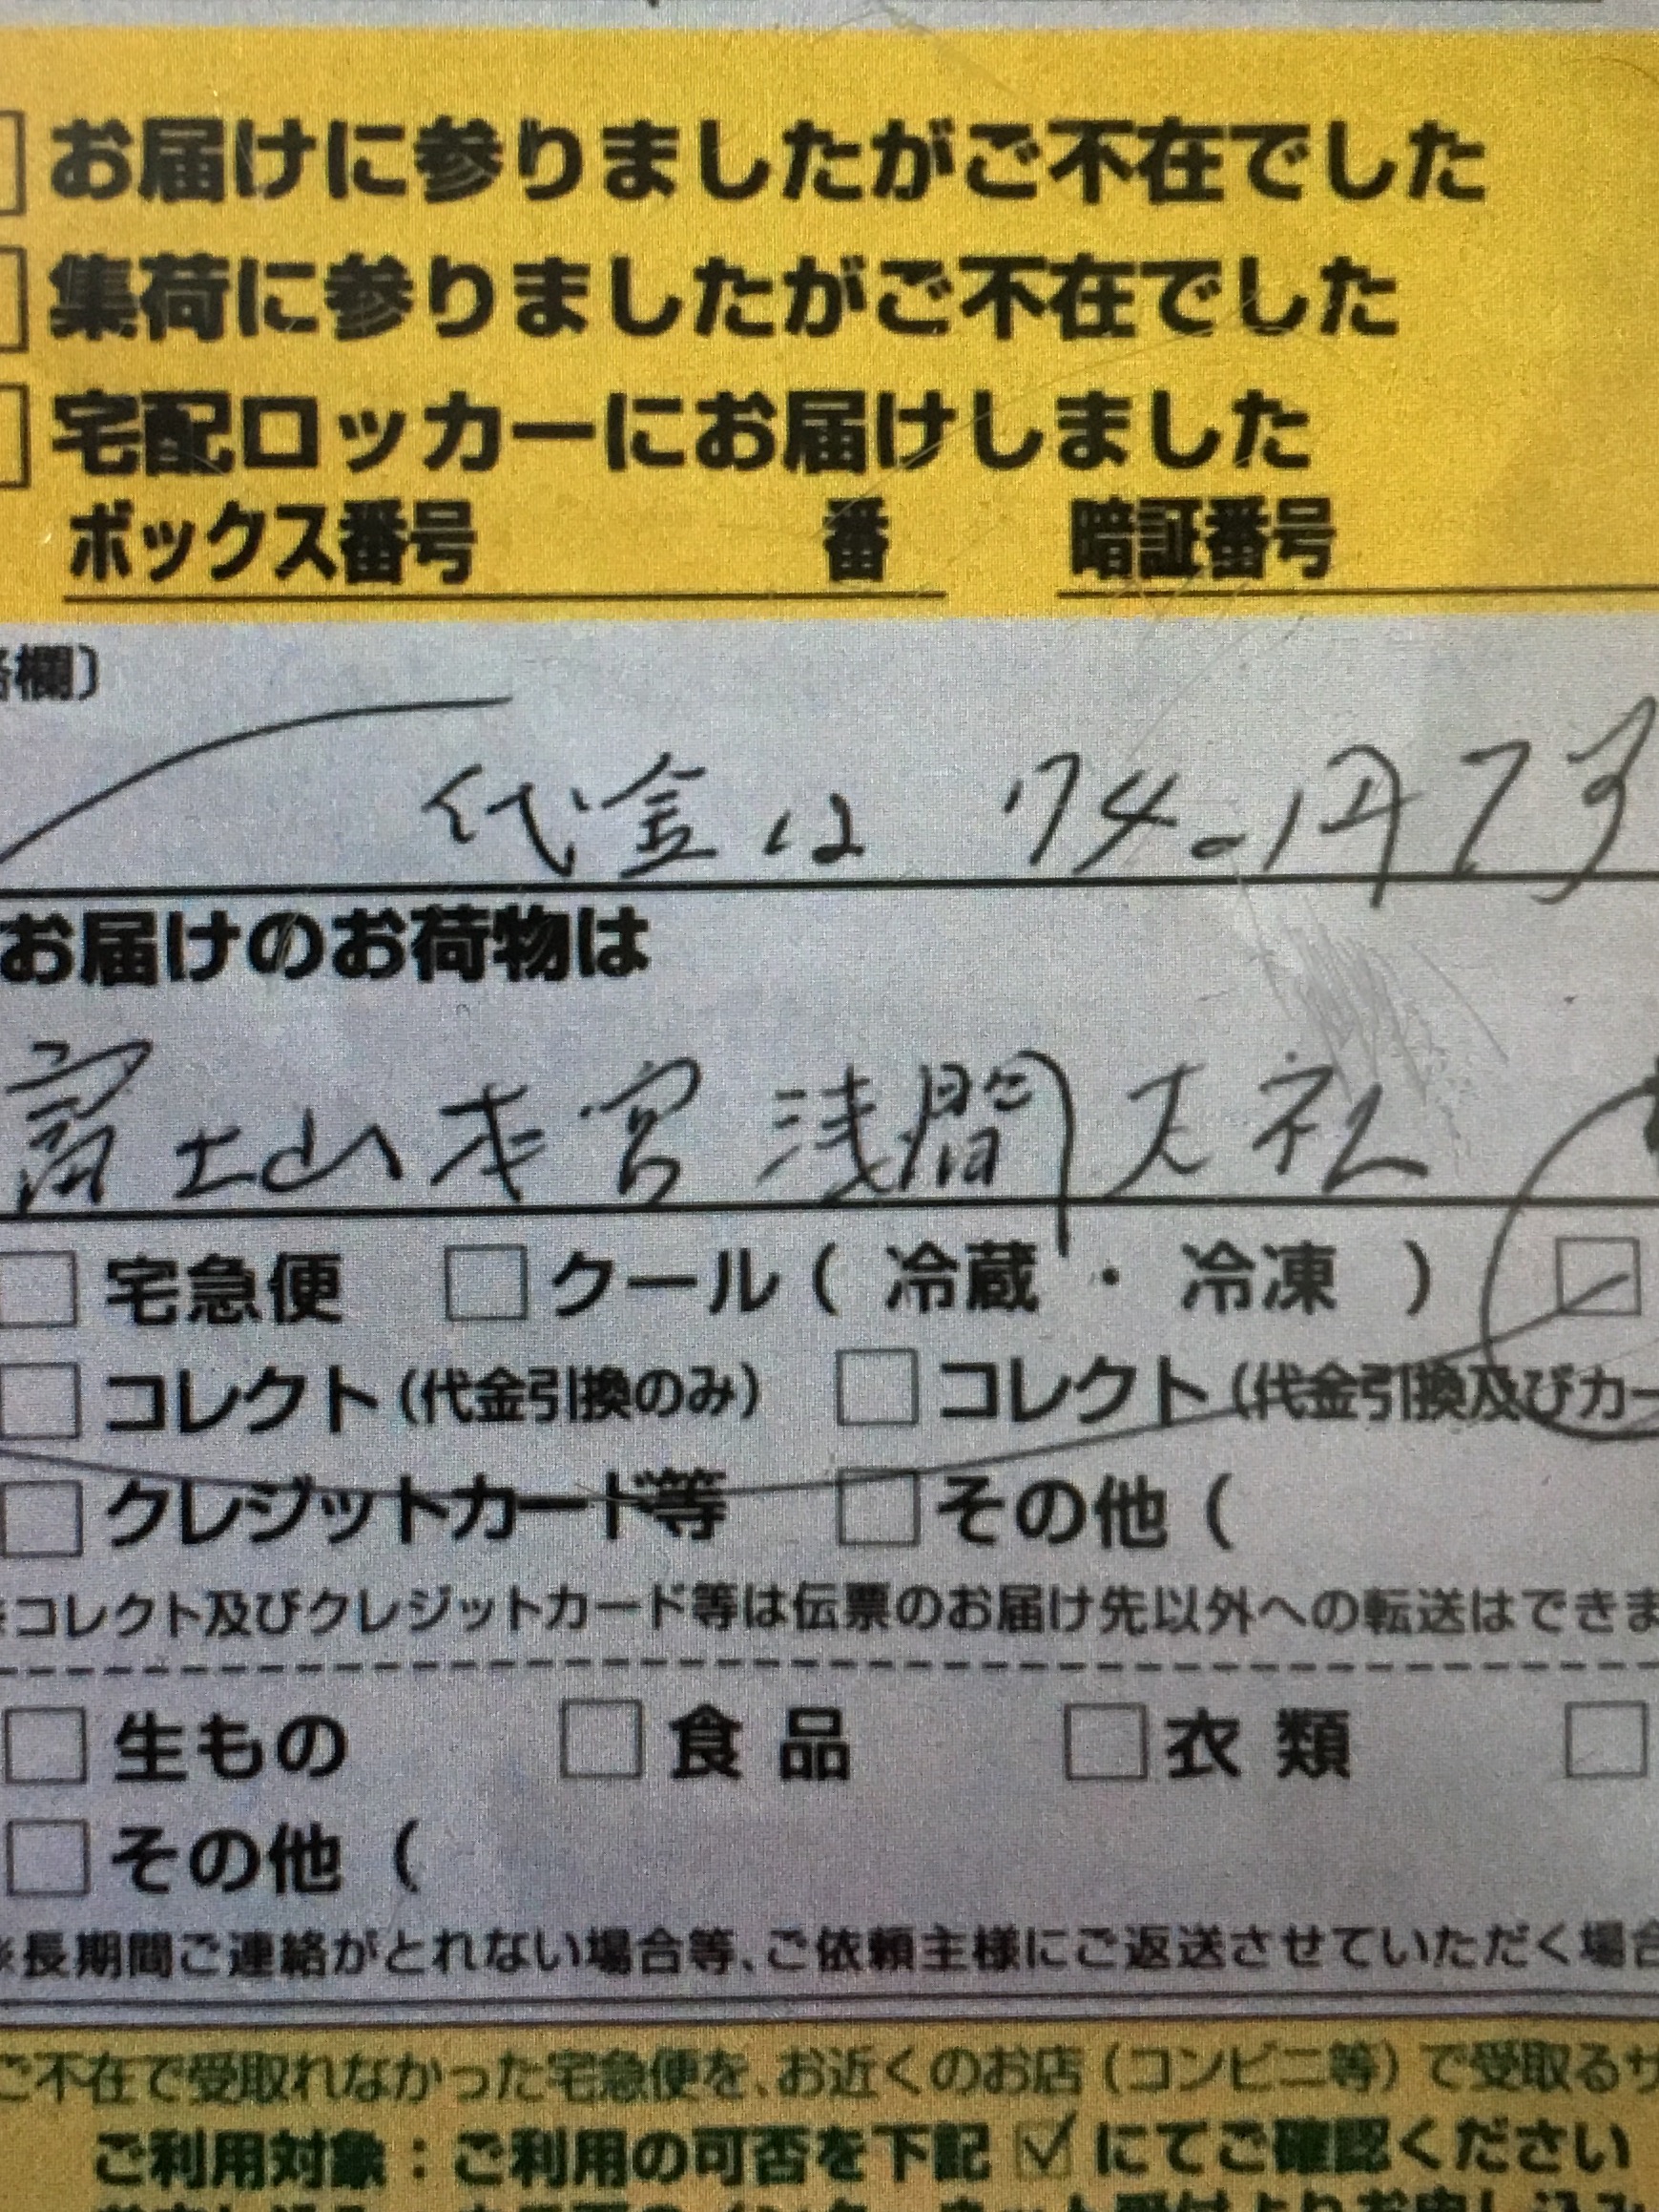 お届けに参りましたがご不在でした
集荷に参りましたがご不在でした
宅配ロッカーにお届けしました
ボックス番号 番 暗証番号
欄〕
代金は
お届けのお荷物は
富士山本宮浅間大社
宅急便 クール( 冷蔵・冷凍 )
コレクト(代金引換のみ) コレクト(代金引換及びカー
クレジットカード等 その他(
※コレクト及びクレジットカード等は伝票のお届け先以外への転送はできま
生もの 食品 衣類
その他(
※長期間ご連絡がとれない場合等、ご依頼主様にご返送させていただく場合
ご不在で受取れなかった宅急便を、お近くのお店(コンビニ等)で受取るサ
ご利用対象:ご利用の可否を下記☑にてご確認ください